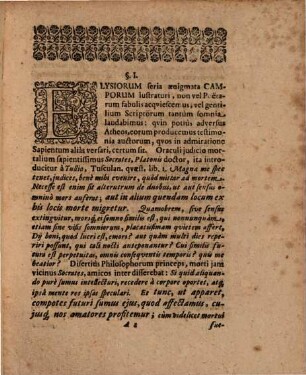 §. I.
ELYSIORUM seria ænigmata CAM-
PORUM lustraturi, non vel Poëtarum
fabulis acquiescemus, vel gentilium
Scriptorum tantum somnia
laudabimus: quin potiùs adversus
Atheos, eorum producemus testimonia
auctorum, quos in admiratione
Sapientum aliis versari, certum sit. Oraculi judicio mortalium
sapientissimus Socrates, Platonis doctor, ita introducitur
à Tullio, Tusculan. quæst. lib. 1. Magna me spes
tenet, judices, bene mihi evenire, quòd mittar ad mortem.
Necesse est enim sit alterutrum de duobus, ut aut sensus omninò
mors auferat, aut in alium quendam locum ex
his locis morte migretur. Quamobrem, sive sensus
extinguitur, morsq́, ei somno similis est, qui nonnunquam
etiam sine visis somniorum, placatissimam quietem affert,
Dij boni, quid lucri est, emori? aut quàm multi dies reperiri
possunt, qui tali nocti anteponantur? Cui similis futura
est perpetuitas, omnis consequentis temporis? quis me
beatior? Disertim Philosophorum princeps, morti jam
vicinus Socrates, amicos inter disserebat: Si quid aliquando
purè sumus intellecturi, recedere à corpore oportet, atq́,
ipsâ mente res ipsas speculari. Et tunc, ut apparet,
compotes futuri sumus ejus, quod affectamus,
cujusq́, nos amatores profitemur; cùm videlicet mortui
A 2 fue-